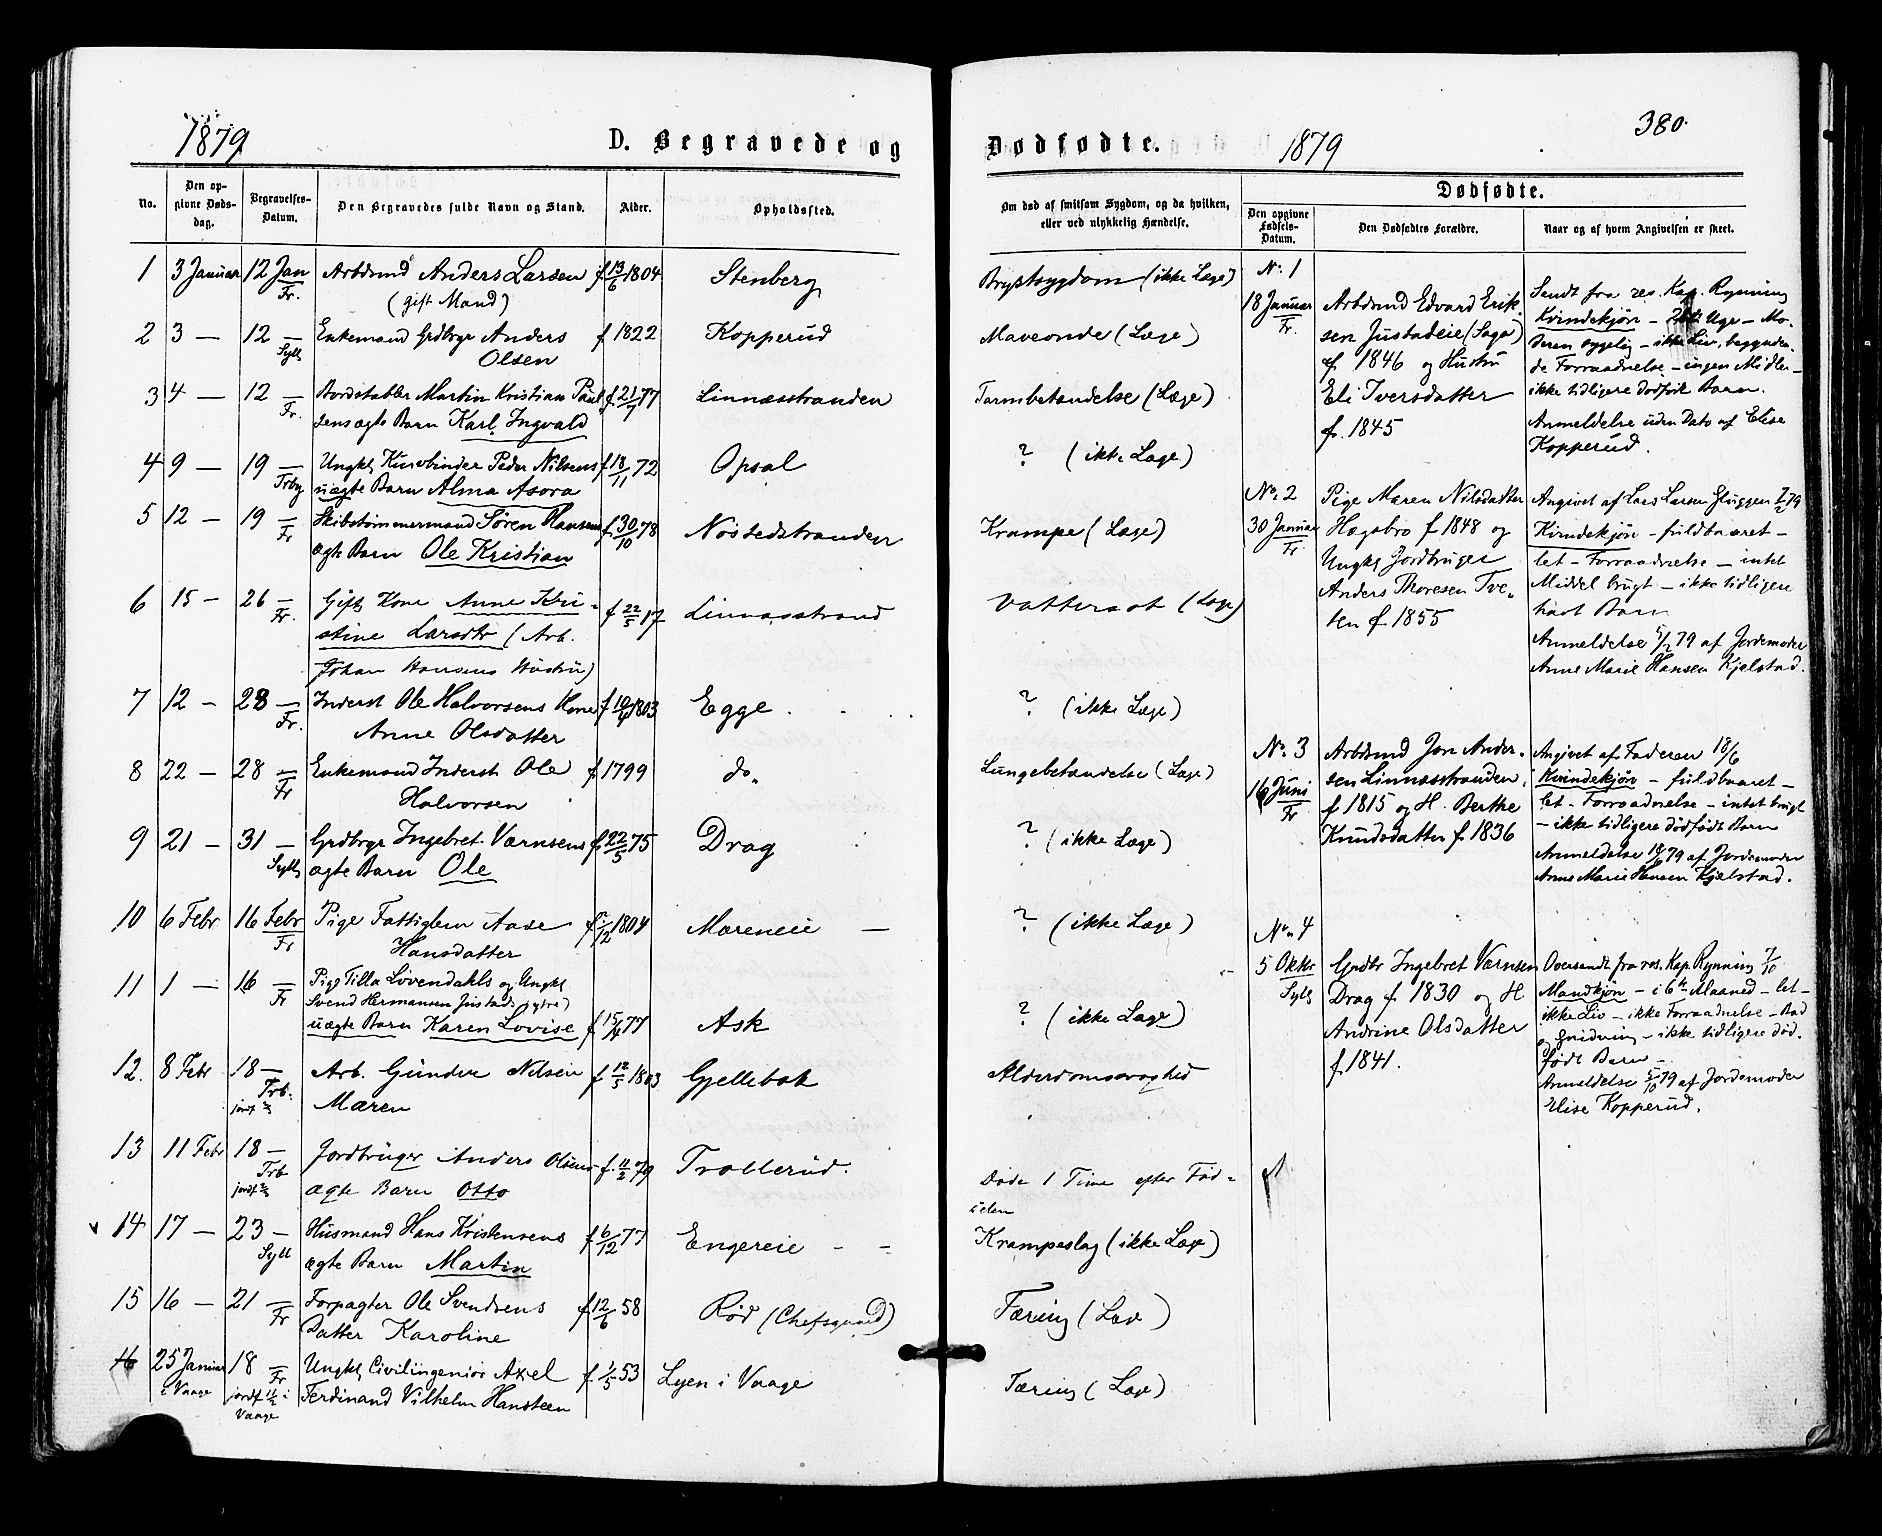 1879
D. Begravede og
No.
Den op-
givne Døds-
dag.
Begravelses-
Datum.
Den Begravedes fulde Navn og Stand.
Alder.
Opholdssted.
1 3 Januar 12 Jan Arbdsmd Anders Larsen f 13/6 1804 Stenberg
Fr. (gift Mand)
2 3 — 12 — Enkemand Grdbrgr Anders f 1822 Kopperud
Syll Olsen
3 4 — 12 — Bordstabler Martin Kristian Paul f. 21/7 77 Linnæsstranden
Fr. sens ægte Barn Karl Ingvald
4 9 — 19 — Ungkl Kurvbinder Peder Nilsens f 18/11 72 Opsal
Trby uægte Barn Alma Asora
5 12 — 19 — Skibstømmermand Sören Hansens f. 30/10 78 Nöstedstranden
Fr ægte Barn Ole Kristian
6 15 — 26 — Gift Kone Anne Kri- f 22/5 17 Linnæsstrand
Fr. stine Larsdtr (Arb.
Johan Hansens Hustru)
7 12 — 28 — Inderst Ole Halvorsens Kone f 1803 Egge
Fr. Anne Olsdatter
8 22 — 28 — Enkemand Inderst Ole f 1799 do.
Fr Halvorsen
9 21 — 31 — Grdbrgr Ingebret Værnsens f. 22/5 75 Drag
Syll ægte Barn Ole
10 6 Febr 16 Febr Pige Fattiglem Aase f /12 1804 Mæreneie —
Fr Hansdatter
11 1 — 16 — Pige Tilla Lövendahls og Ungkl
Fr Svend Hermansen Justads
uægte Barn Karen Lovise f 77 Ask
12. 8 Febr 18 — Arb. Gunder Nilsen f 12/5 1803 Gjellebæk
Trb. Mæren
jordf
13 11 Febr 18 — Jordbruger Anders Olsens f. 11/2 79 Trollerud.
Trb ægte Barn Otto
jordf
14 17 — 23 — Husmand Hans Kristensens f 6/12 77 Engereie — —
Syll ægte Barn Martin
15 16 — 21 — Forpagter Ole Svendsens f 12/6 58 Röd (Chefsgaard)
Fr Datter Karoline
16 25 Januar 18 — Ungkl Civilingeniör Axel f. 1/5 53 Lyen i Vaage
i Vaage Fr Ferdinand Vilhelm Hansteen
jordf i
Vaage
Dødfødte.
1879
380.
Om død af smitsom Sygdom, og da hvilken,
eller ved ulykkelig Hændelse.
Dødfødte.
Den opgivne
Fødsels-
Datum.
Den Dødfødtes Forældre.
Naar og af hvem Angivelsen er skeet.
Brystsygdom (ikke Læge)
Maveonde (Læge)
Tarmbetændelse (Læge)
? (ikke Læge)
Krampe (Læge)
Vattersot (Læge)
? (ikke Læge)
Lungebetændelse (Læge)
? (ikke Læge)
? (ikke Læge)
? (ikke Læge)
Alderdomssvaghed
Döde 1 Time efter Föd-
selen
Krampeslag (ikke Læge)
Tæring (Læge)
Tæring (Læge)
No. 1
18 Januar
Fr.
Arbdsmd Edvard Erik-
sen Justadeie (Saga)
f. 1846 og Hustru
Eli Iversdatter
f. 1845
Sendt fra res. Kap. Rynning
Kvindekjön — Uge — Mo-
deren sygelig — ikke Liv, begynden-
de Forraadnelse — ingen Midler —
ikke tidligere dödfödt Barn.
Anmeldelse uden Dato af Elise
Kopperud.
No. 2
30 Januar
Fr.
Pige Maren Nilsdatter
Hægsbro f 1848 og
Ungkl Jordbruger
Anders Thoresen Tve-
ten f. 1855
Angivet af Lars Larsen Gluggen 79
Kvindekjön — fuldbaaret —
let — Forraadnelse — intet
Middel brugt — ikke tidligere
havt Barn
Anmeldelse 5/2 79 af Jordemoder
Anne Marie Hansen Kjelstad.
No. 3
16 Juni
Fr
Arbdsmd Jon Ander-
sen Linnæsstranden
f 1815 og H. Berthe
Knudsdatter f. 1836
Angivet af Faderen 18/6
Kvindekjön — fuldbaaret —
let — Forraadnelse — intet brugt
— ikke tidligere dödfödt Barn
Anmeldelse 18/6 79 af Jordemoder
Anne Marie Hansen Kjelstad.
No. 4
5 Oktbr
Syll
Grdbr Ingebret Værnsen
Drag f. 1830 og H
Andrine Olsdatter
f. 1841.
Oversendt fra res. Kap. Rynning 7/10
Mandkjön — i 6te Maaned — let —
ikke Liv — ikke Forraadnelse — Bad
og Gnidning — ikke tidligere död-
födt Barn —
Anmeldelse 5/10 79 af Jordemoder
Elise Kopperud.